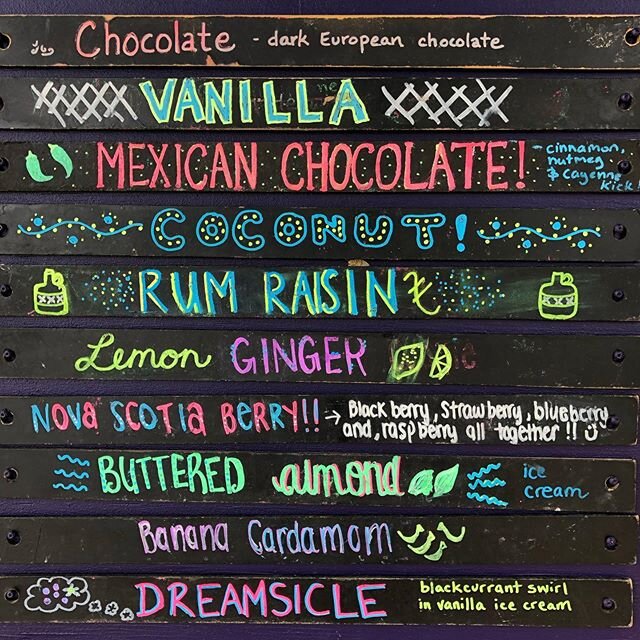 Chocolate - dark European chocolate
VANILLA
MEXICAN CHOCOLATE! - cinnamon,
nutmeg
& cayenne
kick!
COCONUT!
RUM RAISIN
Lemon GINGER
NOVA SCOTIA BERRY!! → Blackberry, Strawberry, blueberry
and, raspberry all together!!
BUTTERED almond ice
cream
Banana Cardamom
DREAMSICLE blackcurrant swirl
in vanilla ice cream